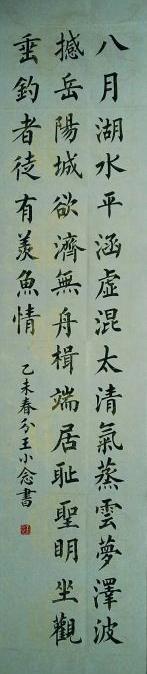 八月湖水平涵虛混太清氣蒸雲夢澤波
撼岳陽城欲濟無舟楫端居耻聖明坐觀
垂釣者徒有羨魚情
乙未春分王小念書